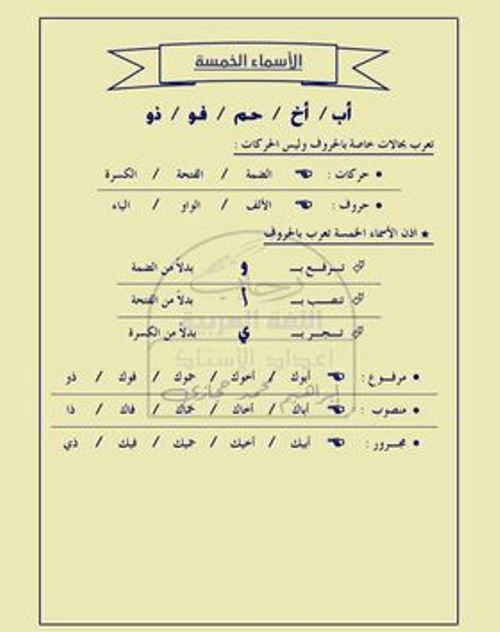 الأسماء الخمسة
أب / أخ / حم / فو / ذو
تعرب بحالات خاصة بالحروف وليس الحركات :
• حركات : ☚ الضمة / الفتحة / الكسرة
• حروف : ☚ الألف / الواو / الياء
★ اذن الأسماء الخمسة تعرب بالحروف
ترفع بـ و بدلاً من الضمة
تنصب بـ أ بدلاً من الفتحة
تجر بـ ي بدلاً من الكسرة
• مرفوع : ☚ أبوك / أخوك / حموك / فوك / ذو
• منصوب : ☚ أباك / أخاك / حماك / فاك / ذا
• مجرور : ☚ أبيك / أخيك / حميك / فيك / ذي
رحاب
اللغة العربية
إعداد الأستاذ
إبراهيم محمد حجازي